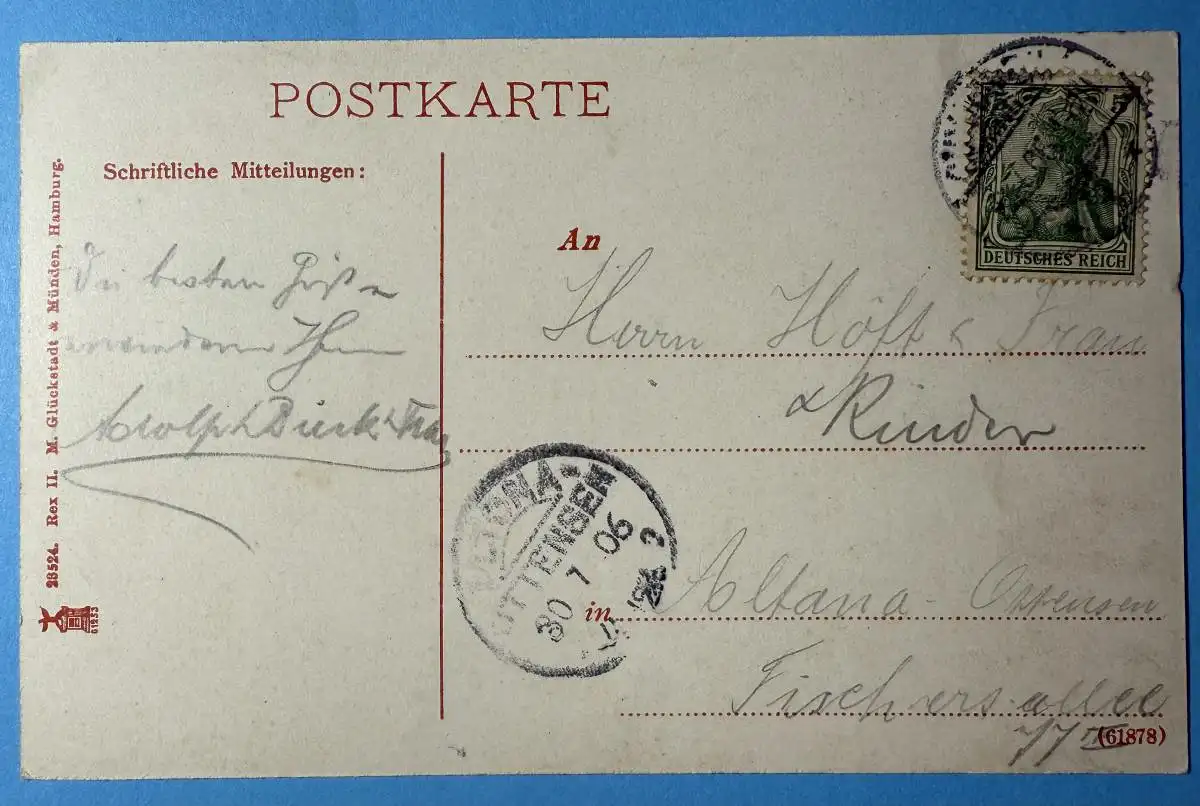 POSTKARTE
Schriftliche Mitteilungen:
Die besten
Adolph Dieck & Frau
28524. Rex II. M. Glückstadt & Münden, Hamburg.
61953
5
DEUTSCHES REICH
An
Herrn Höft & Frau
& Kinder
in Altona-Ottensen
Fischersallee
77 III
(61878)
ALTONA-
OTTENSEN
30 7 06